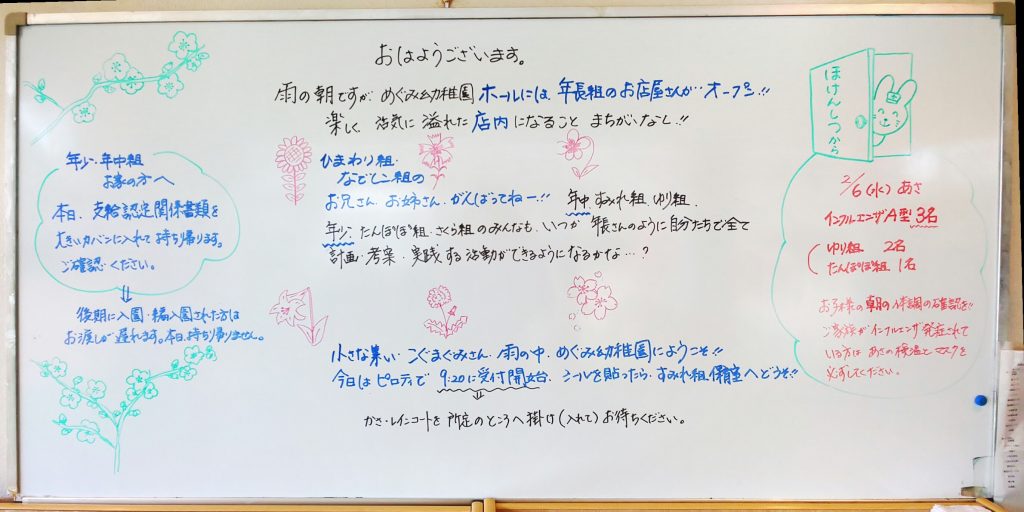 おはようございます。
雨の朝ですが めぐみ幼稚園 ホールには、年長組のお店屋さんが…オープン!!
楽しく、活気に溢れた店内になること まちがいなし!!
ひまわり組・
なでしこ組の
お兄さん、お姉さん、がんばってねー!!
年中 すみれ組 ゆり組、
年少、たんぽぽ組・さくら組のみんなも、いつか 年長さんのように自分たちで全て
計画・考案・実践する活動ができるようになるかな…?
小さな集い・こぐまぐみさん、雨の中、めぐみ幼稚園にようこそ!!
今日はピロティで 9:20に受付開始、シールを貼ったら、すみれ組保育室へどうぞ!!
⇓
かさ・レインコートを 所定のところへ掛け(入れて)お待ちください。
年少・年中組
お家の方へ
本日、支給認定関係書類を
大きいカバンに入れて持ち帰ります。
ご確認ください。
⇓
後期に入園・転入園された方は
お渡しが遅れます。本日、持ち帰りません。
ほけんしつから
2/6(水)あさ
インフルエンザA型 3名
ゆり組 2名
たんぽぽ組 1名
お子様の朝の体調の確認を!!
ご家族がインフルエンザ発症されて
いる方は あさの検温とマスクを
必ずしてください。